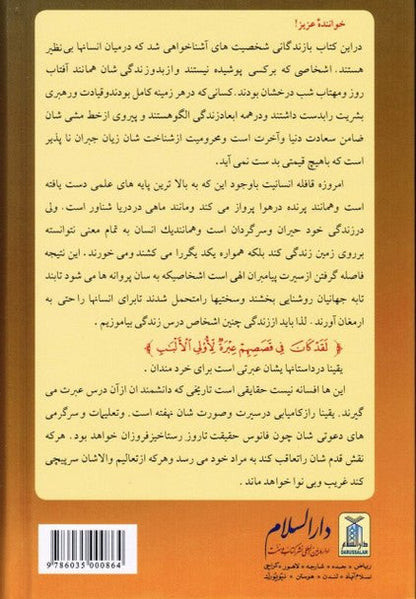 خوانندهٔ عزیز!
دراین کتاب بازندگانی شخصیت های آشناخواهی شد که درمیان انسانها بی نظیر
هستند. اشخاصی که برکسی پوشیده نیستند وازبدوزندگی شان همانند آفتاب
روز ومهتاب شب درخشان بودند. کسانی که درهر زمینه کامل بودندوقیادت ورهبری
بشریت رابدست داشتند ودرهمه ابعادزندگی الگوهستند و پیروی ازخط مشی شان
ضامن سعادت دنیا وآخرت است ومحرومیت ازشناخت شان زیان جبران نا پذیر
است که باهیچ قیمتی بد ست نمی آید.
امروزه قافله انسانیت باوجود این که به بالا ترین پایه های علمی دست یافته
است وهمانند پرنده درهوا پرواز می کند ومانند ماهی دردریا شناور است. ولی
درزندگی خود حیران وسرگردان است وهمانندیك انسان به تمام معنی نتوانسته
برروی زمین زندگی کند بلکه همواره یکد یگررا می کشند ومی خورند. این نتیجه
فاصله گرفتن ازسیرت پیامبران الهی است اشخاصیکه به سان پروانه ها می شود تابند
تابه جهانیان روشنایی بخشند وسختیها رامتحمل شدند تابرای انسانها راحتی به
ارمغان آورند. لذا باید اززندگی چنین اشخاص درس زندگی بیاموزیم .
﴿ لَقَدْ كَانَ فِي قَصَصِهِمْ عِبْرَةٌ لِّأُوْلِي الْأَلْبَابِ ﴾
یقینا درداستانها یشان عبرتی است برای خرد مندان .
این ها افسانه نیست حقایقی است تاریخی که دانشمندان ازآن درس عبرت می
گیرند. یقینا رازکامیابی درسیرت وصورت شان نهفته است. وتعلیمات و سرگرمی
های دعوتی شان چون فانوس حقیقت تاروز رستاخیزفروزان خواهد بود. هرکه
نقش قدم شان راتعاقب کند به مراد خود می رسد وهرکه ازتعالیم والاشان سرپیچی
کند غریب وبی نوا خواهد ماند .
دارالسلام
دارالسلام
DARUSSALAM
ریاض • جده • شارجه • لاهور • کراچی
اسلام آباد • لندن • هوستن • نیویورک
9 786035 000864